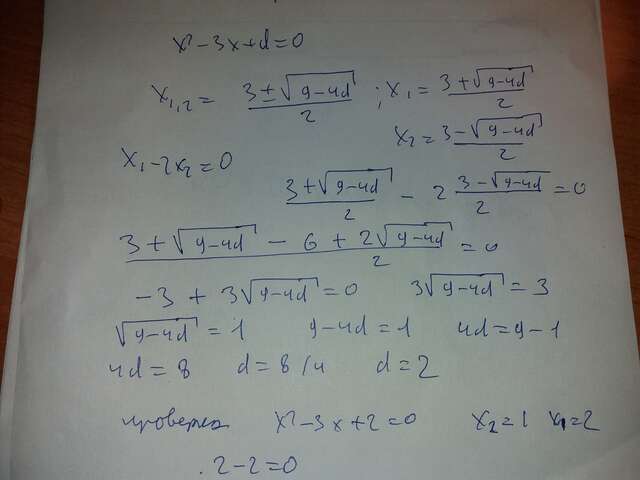 x² - 3x + d = 0
x₁,₂ = (3 ± √(9-4d)) / 2 , x₁ = (3 + √(9-4d)) / 2
x₂ = (3 - √(9-4d)) / 2
x₁ - 2x₂ = 0
(3 + √(9-4d)) / 2 - 2 (3 - √(9-4d)) / 2 = 0
(3 + √(9-4d) - 6 + 2√(9-4d)) / 2 = 0
-3 + 3√(9-4d) = 0 3√(9-4d) = 3
√(9-4d) = 1 9-4d = 1 4d = 9-1
4d = 8 d = 8/4 d = 2
проверка x² - 3x + 2 = 0 x₂ = 1 x₁ = 2
2 - 2 = 0